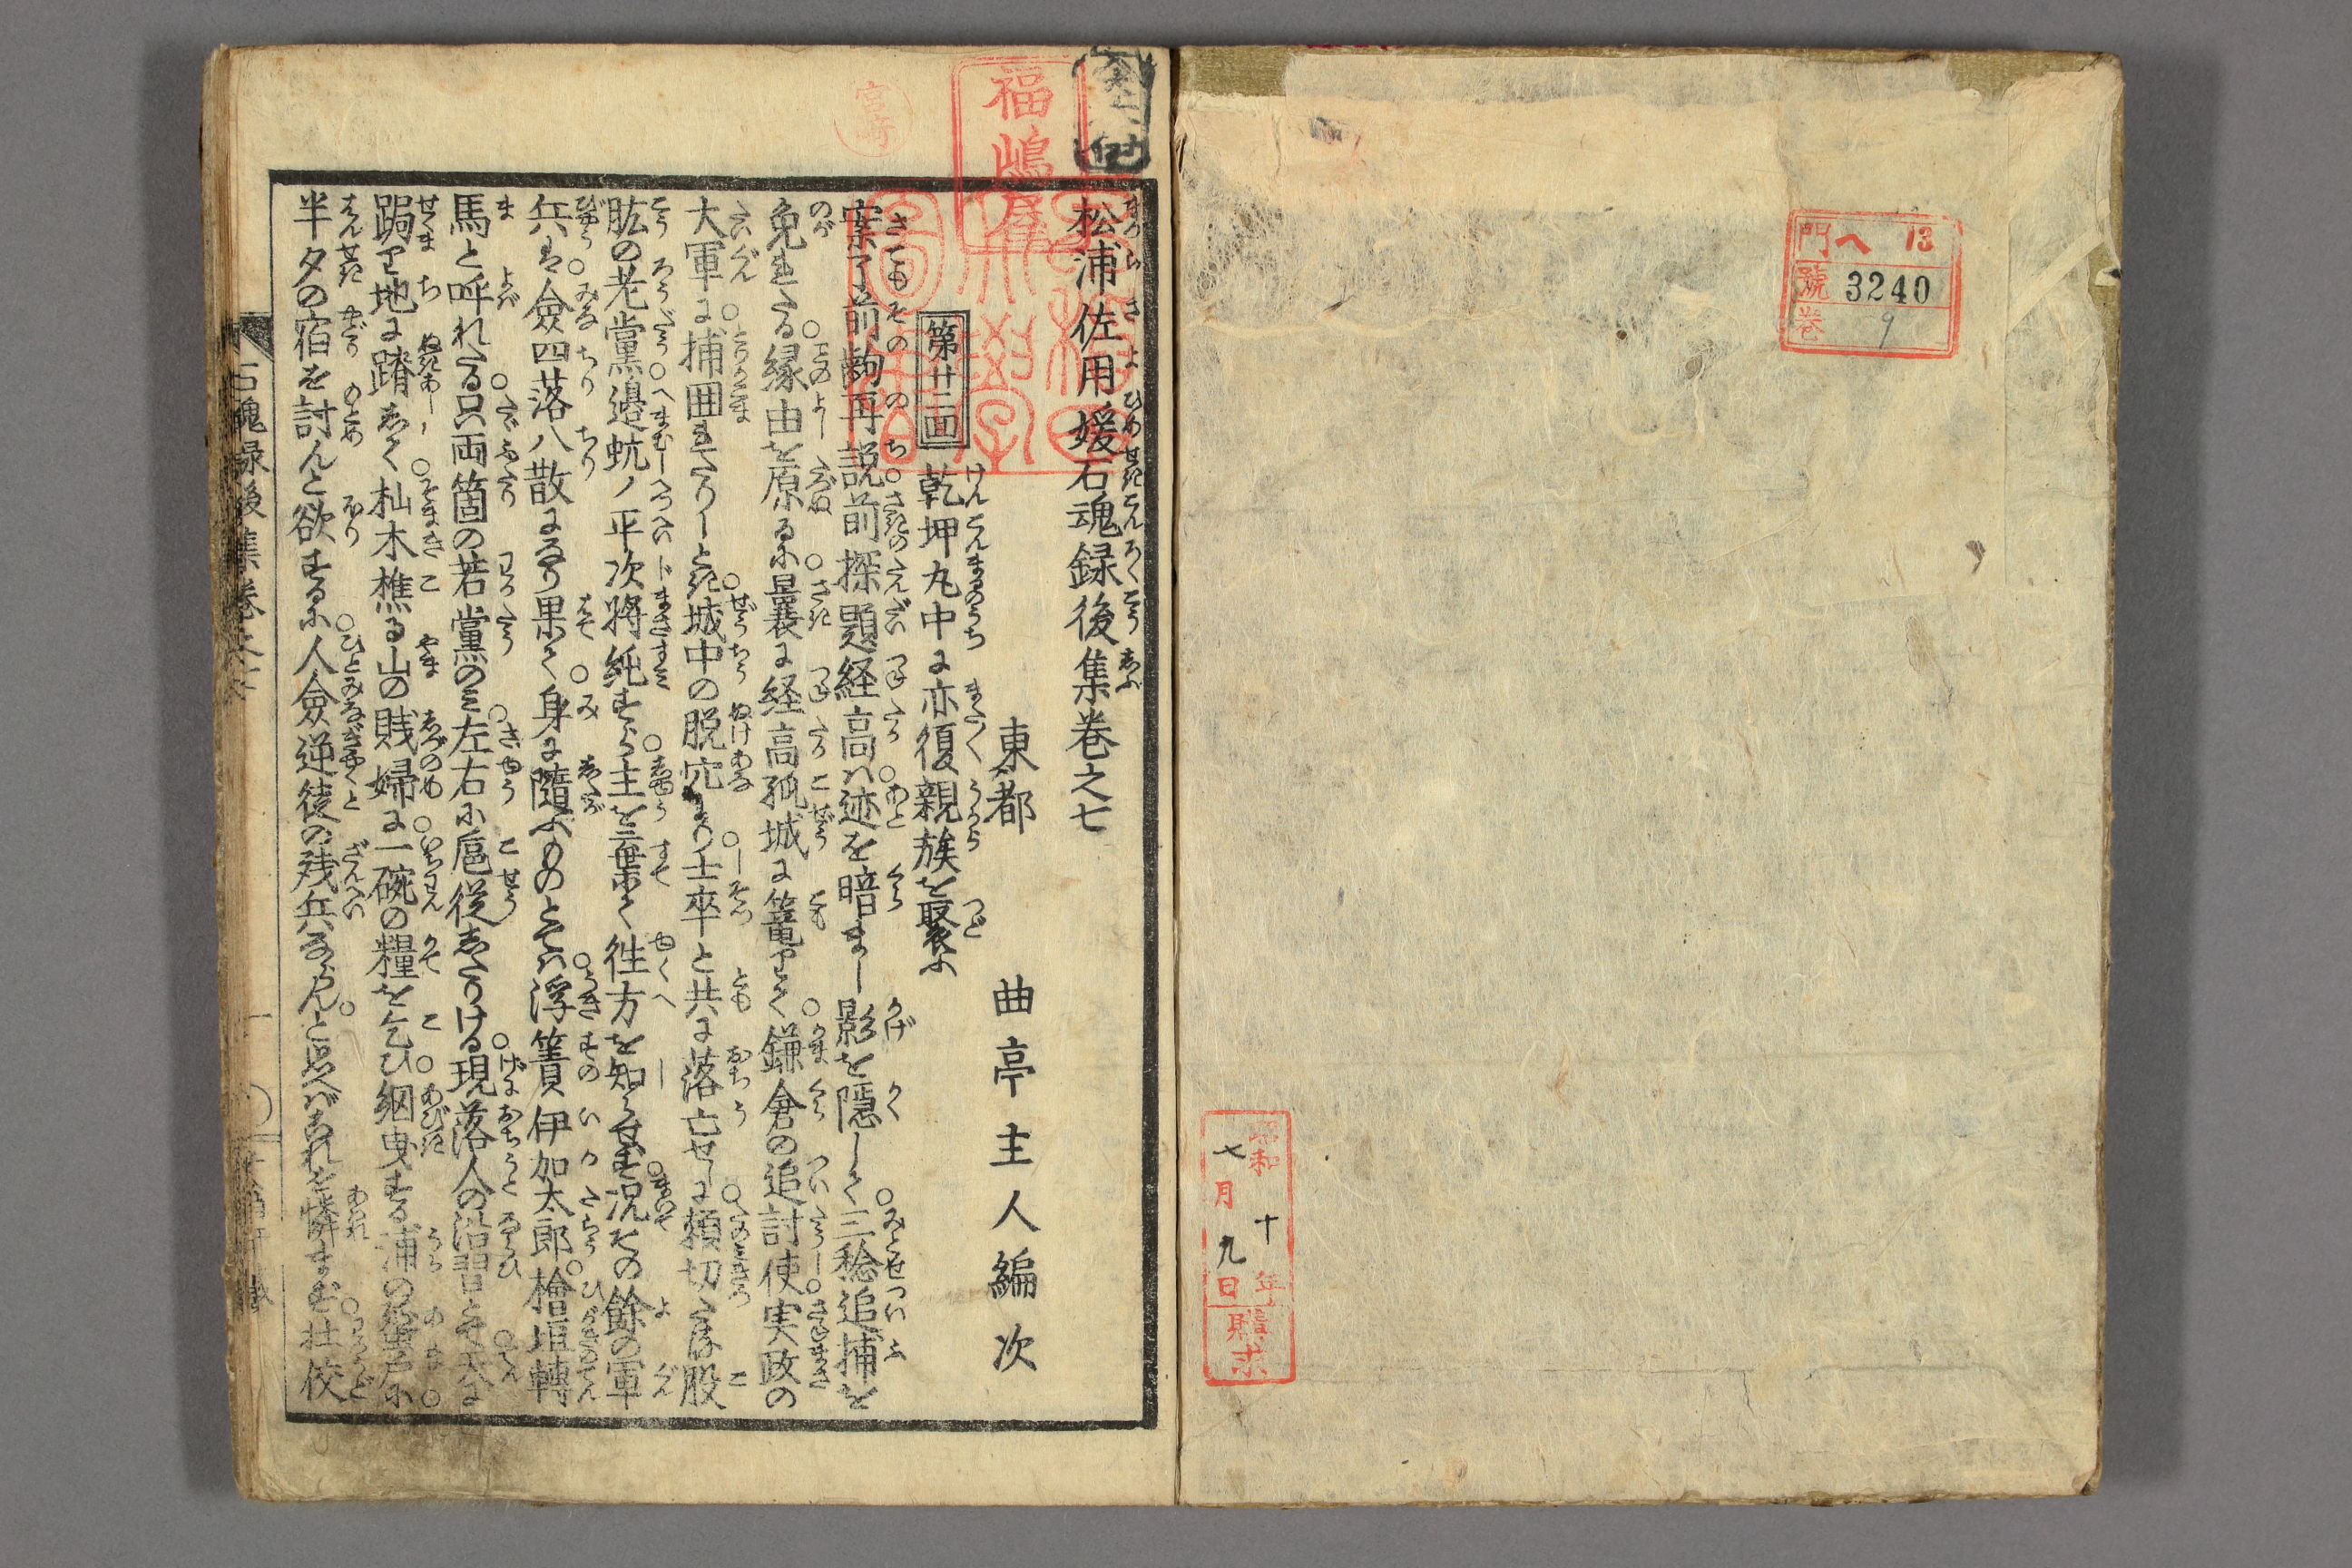 門 ヘ 13
號 3240
巻 9
昭和十年
七月九日
購求
福嶋屋
宮崎
松浦佐用媛石魂録後集巻之七
まつらさよひめせきこんろくこうしふ
東都 曲亭主人編次
第廿二回 乾坤丸中に亦復親族を聚ふ
案下前齣再説前探題経高ハ迹を暗まし影を隠して三稔追捕を
免れたる縁由を原るに曩に経高孤城に篭りて鎌倉の追討使実政の
大軍に捕囲れたりしとき城中の脱穴より士卒と共に落亡せしに頼切たる股
肱の老黨邉蚢ノ平次將純すら主を棄て徃方を知らせず况その餘の軍
兵は僉四落八散になり果て身に隨ふものとてハ浮簀伊加太郎檜垣轉
馬と呼れたる只両箇の若黨のミ左右に扈従したりける現落人の沿習とて天に
跼り地に蹐して杣木樵る山の賎婦に一碗の糧を乞ひ網曳する浦の蜑戸に
半夕の宿を討んと欲するに人僉逆徒の残兵ならんと思へバこれを憐まず壮佼
石魂録後集巻之七 一